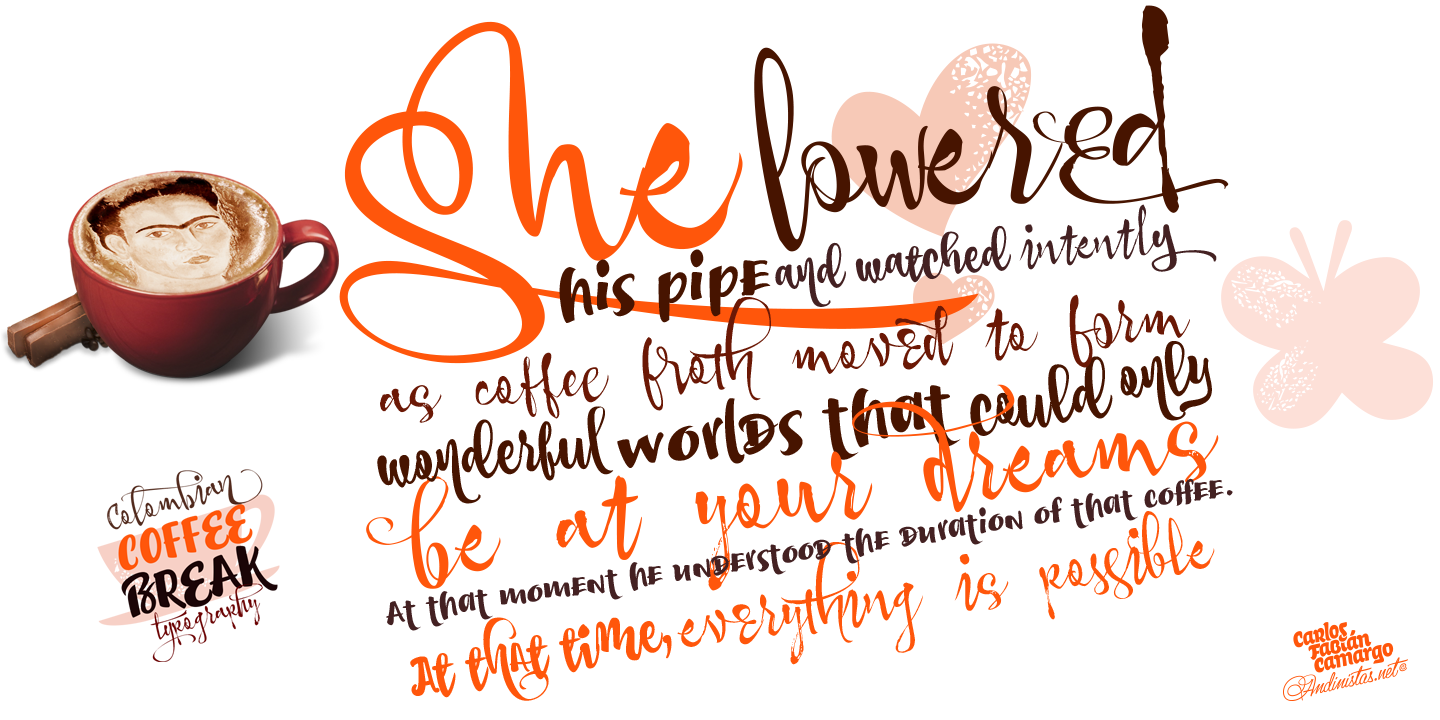 She lowered
his pipe and watched intently
as coffee froth moved to form
wonderful worlds that could only
be at your dreams
At that moment he understood the duration of that coffee.
At that time, everything is possible
Colombian
COFFEE
BREAK
typography
Carlos
Fabián
Camargo
Andinistas.net®